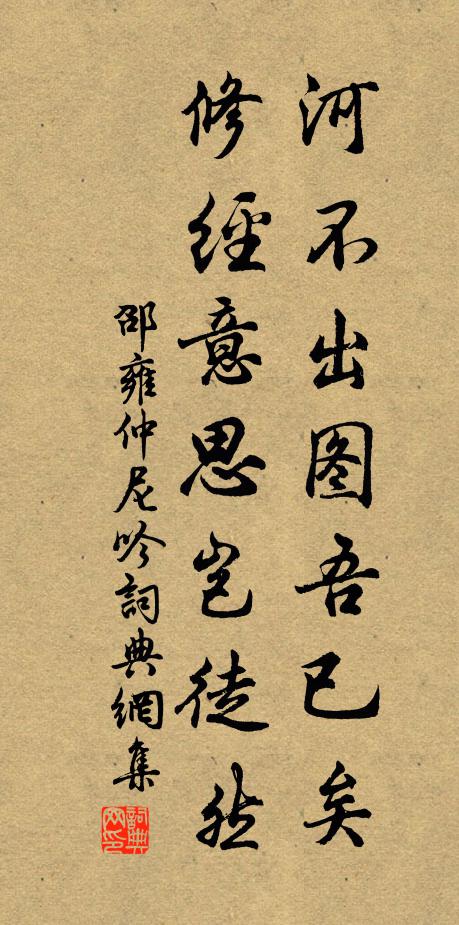 河不出图吾已矣
修經意思岂徒然
邵雍仲尼吟詞典網集
詞典网印